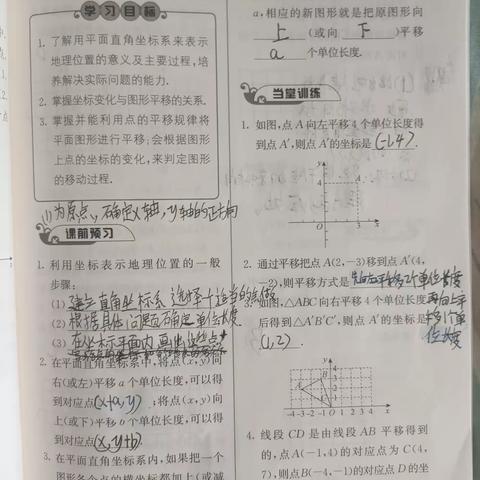 学习目标
1. 了解用平面直角坐标系来表示
地理位置的意义及主要过程,培
养解决实际问题的能力.
2. 掌握坐标变化与图形平移的关系.
3. 掌握并能利用点的平移规律将
平面图形进行平移;会根据图形
上点的坐标的变化,来判定图形
的移动过程.
为原点,确定x轴,y轴的正方向
课前预习
1. 利用坐标表示地理位置的一般
步骤:
(1) 建立直角坐标系,选择一个适当的
(2) 根据具体问题确定单位长度
(3) 在坐标平面内画出这些点
2. 在平面直角坐标系中,将点(x,y)向
右(或左)平移a个单位长度,可以得
到对应点(x+a,y);将点(x,y)向
上(或下)平移b个单位长度,可以得
到对应点(x,y+b).
3. 在平面直角坐标系内,如果把一个
图形各个点的横坐标都加上(或减
a,相应的新图形就是把原图形向
上(或向下)平移
a个单位长度.
当堂训练
1. 如图,点A向左平移4个单位长度得
到点A′,则点A′的坐标是(-1,4).
y
4
A
O
3
x
2. 通过把点A(2,-3)移到点A′(4,
-2),则平移方式是先向右平移2个单位长度
再向上平
移1个单
位长度
3. 如图,△ABC向右平移4个单位长度
后得到△A′B′C′,则点A′的坐标是
(1,2).
-4 -3 -2 -1 O
4. 线段CD是由线段AB平移得到
的,点A(-1,4)的对应点为C(4,
7),则点B(-4,-1)的对应点D的坐